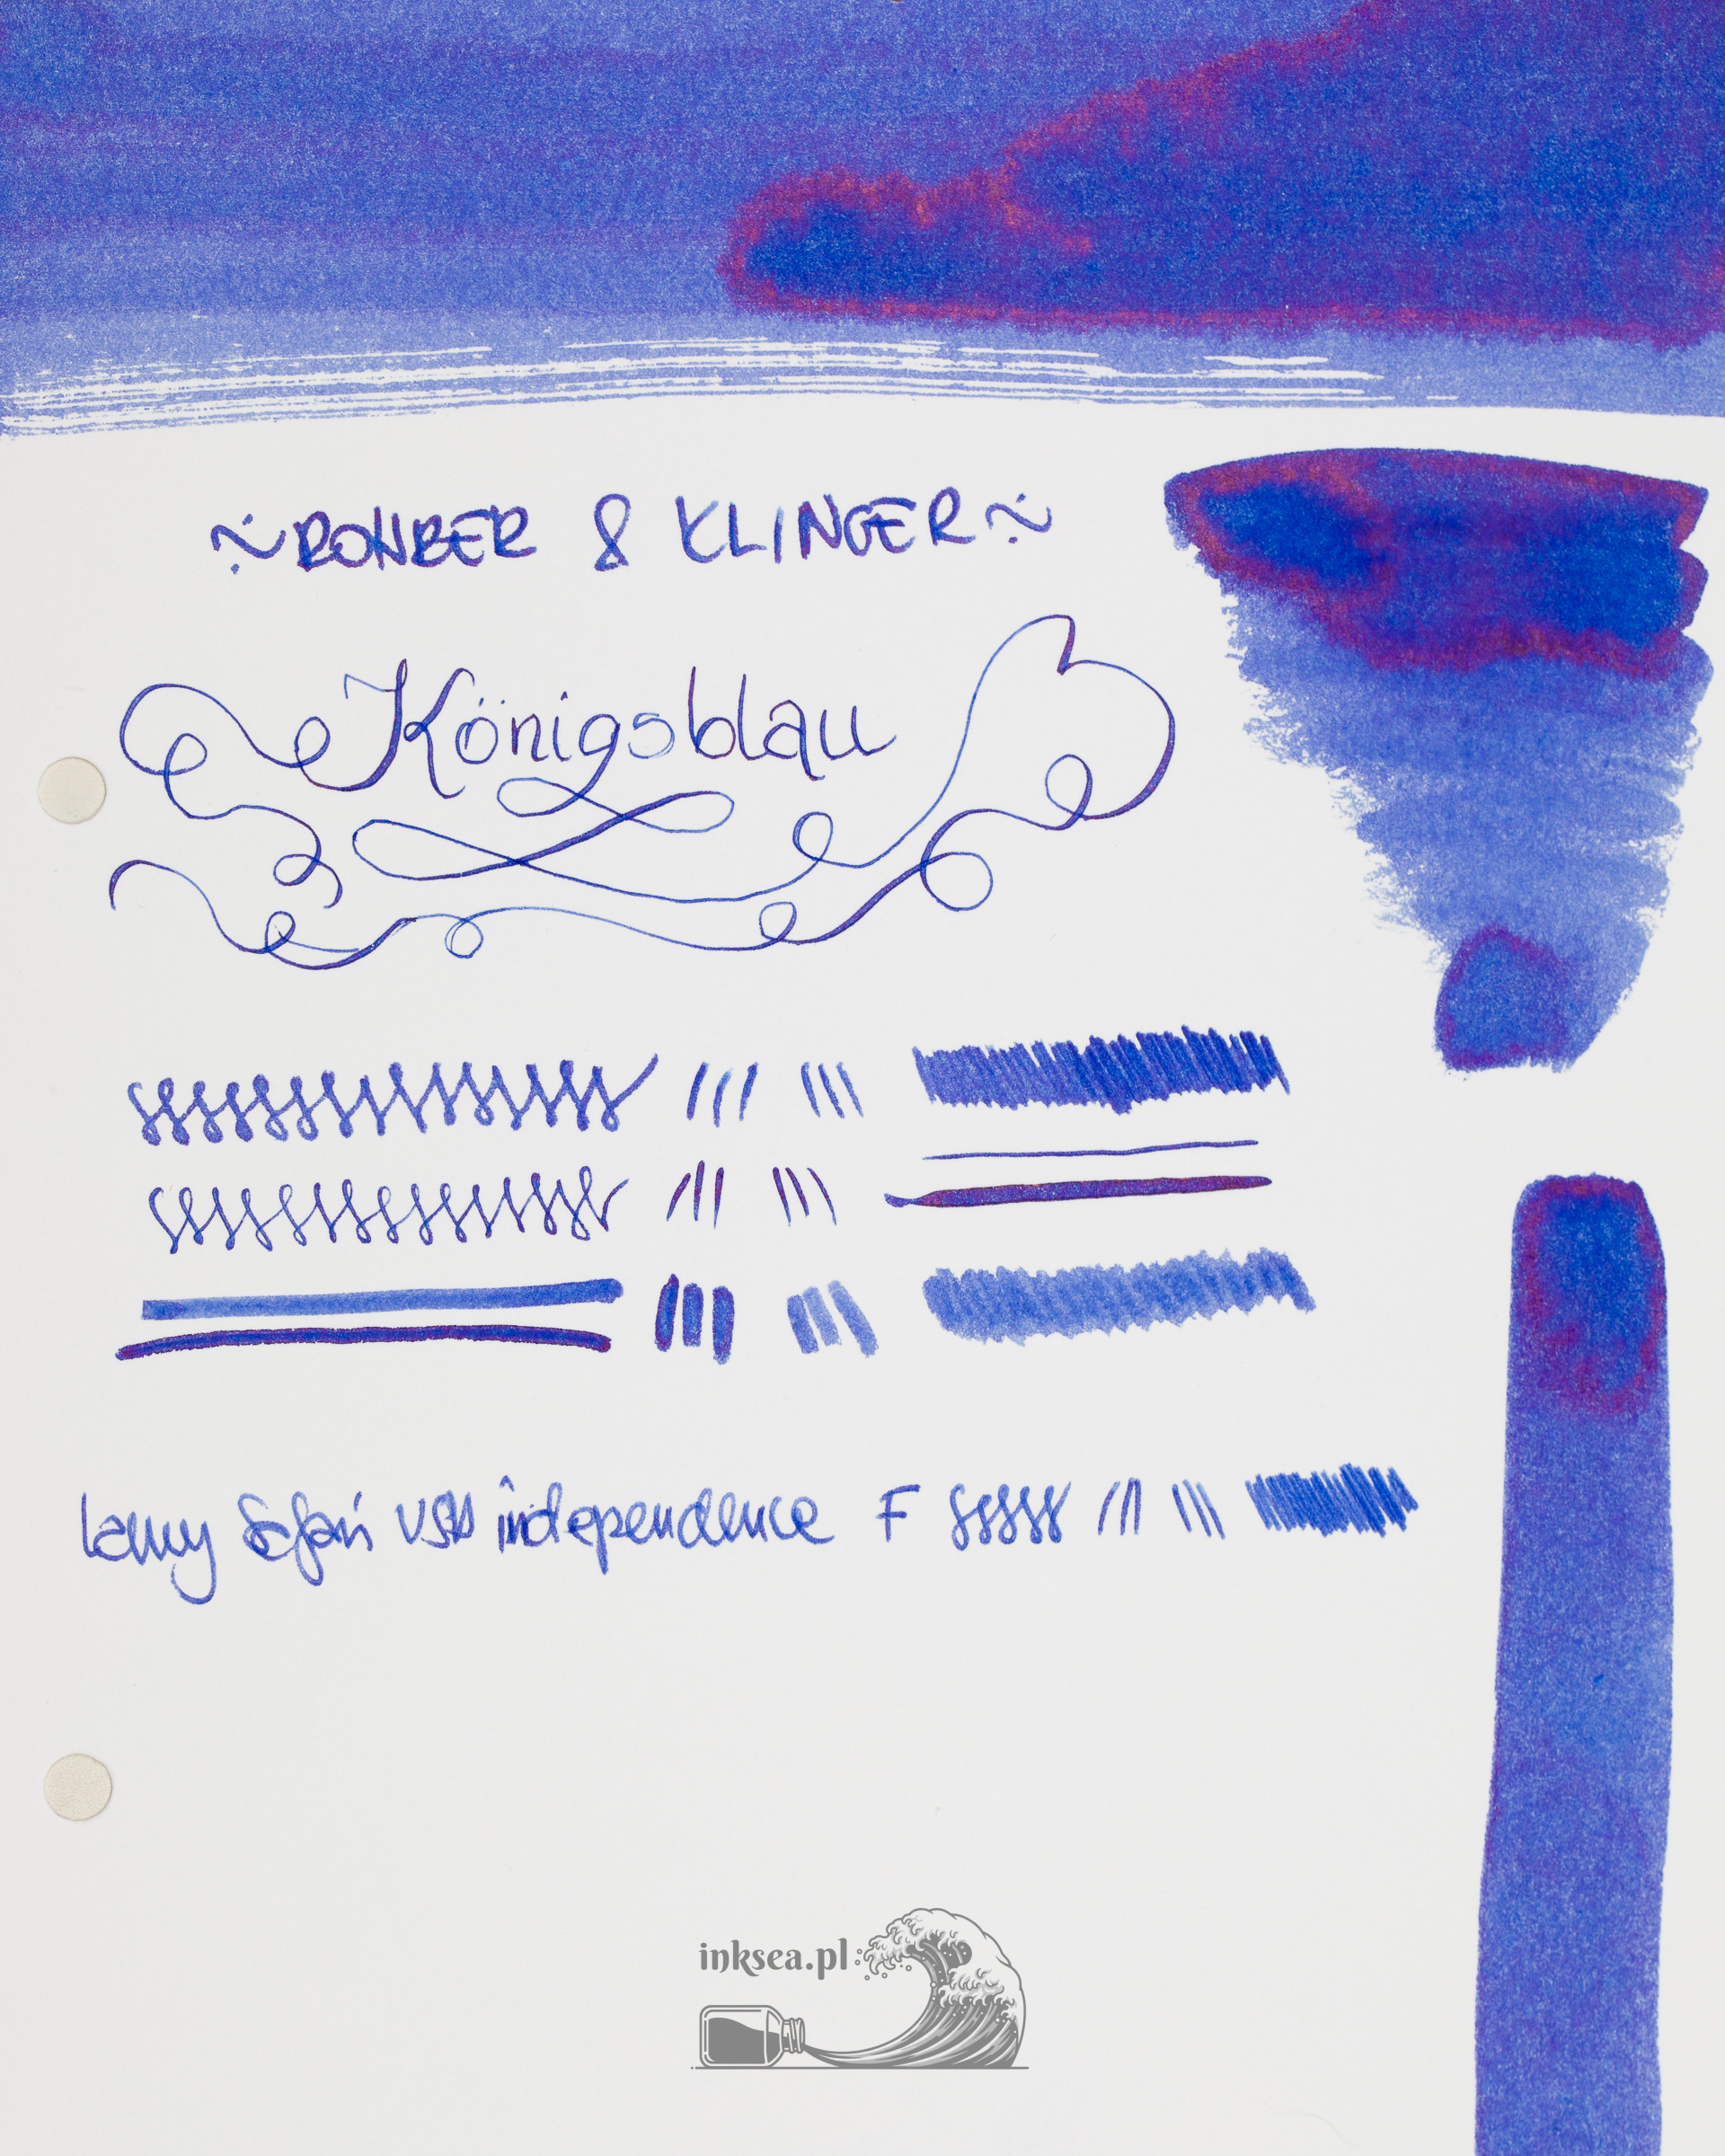 ~ROHRER & KLINGER~
Königsblau
Lamy Safari USA independence F
inksea.pl